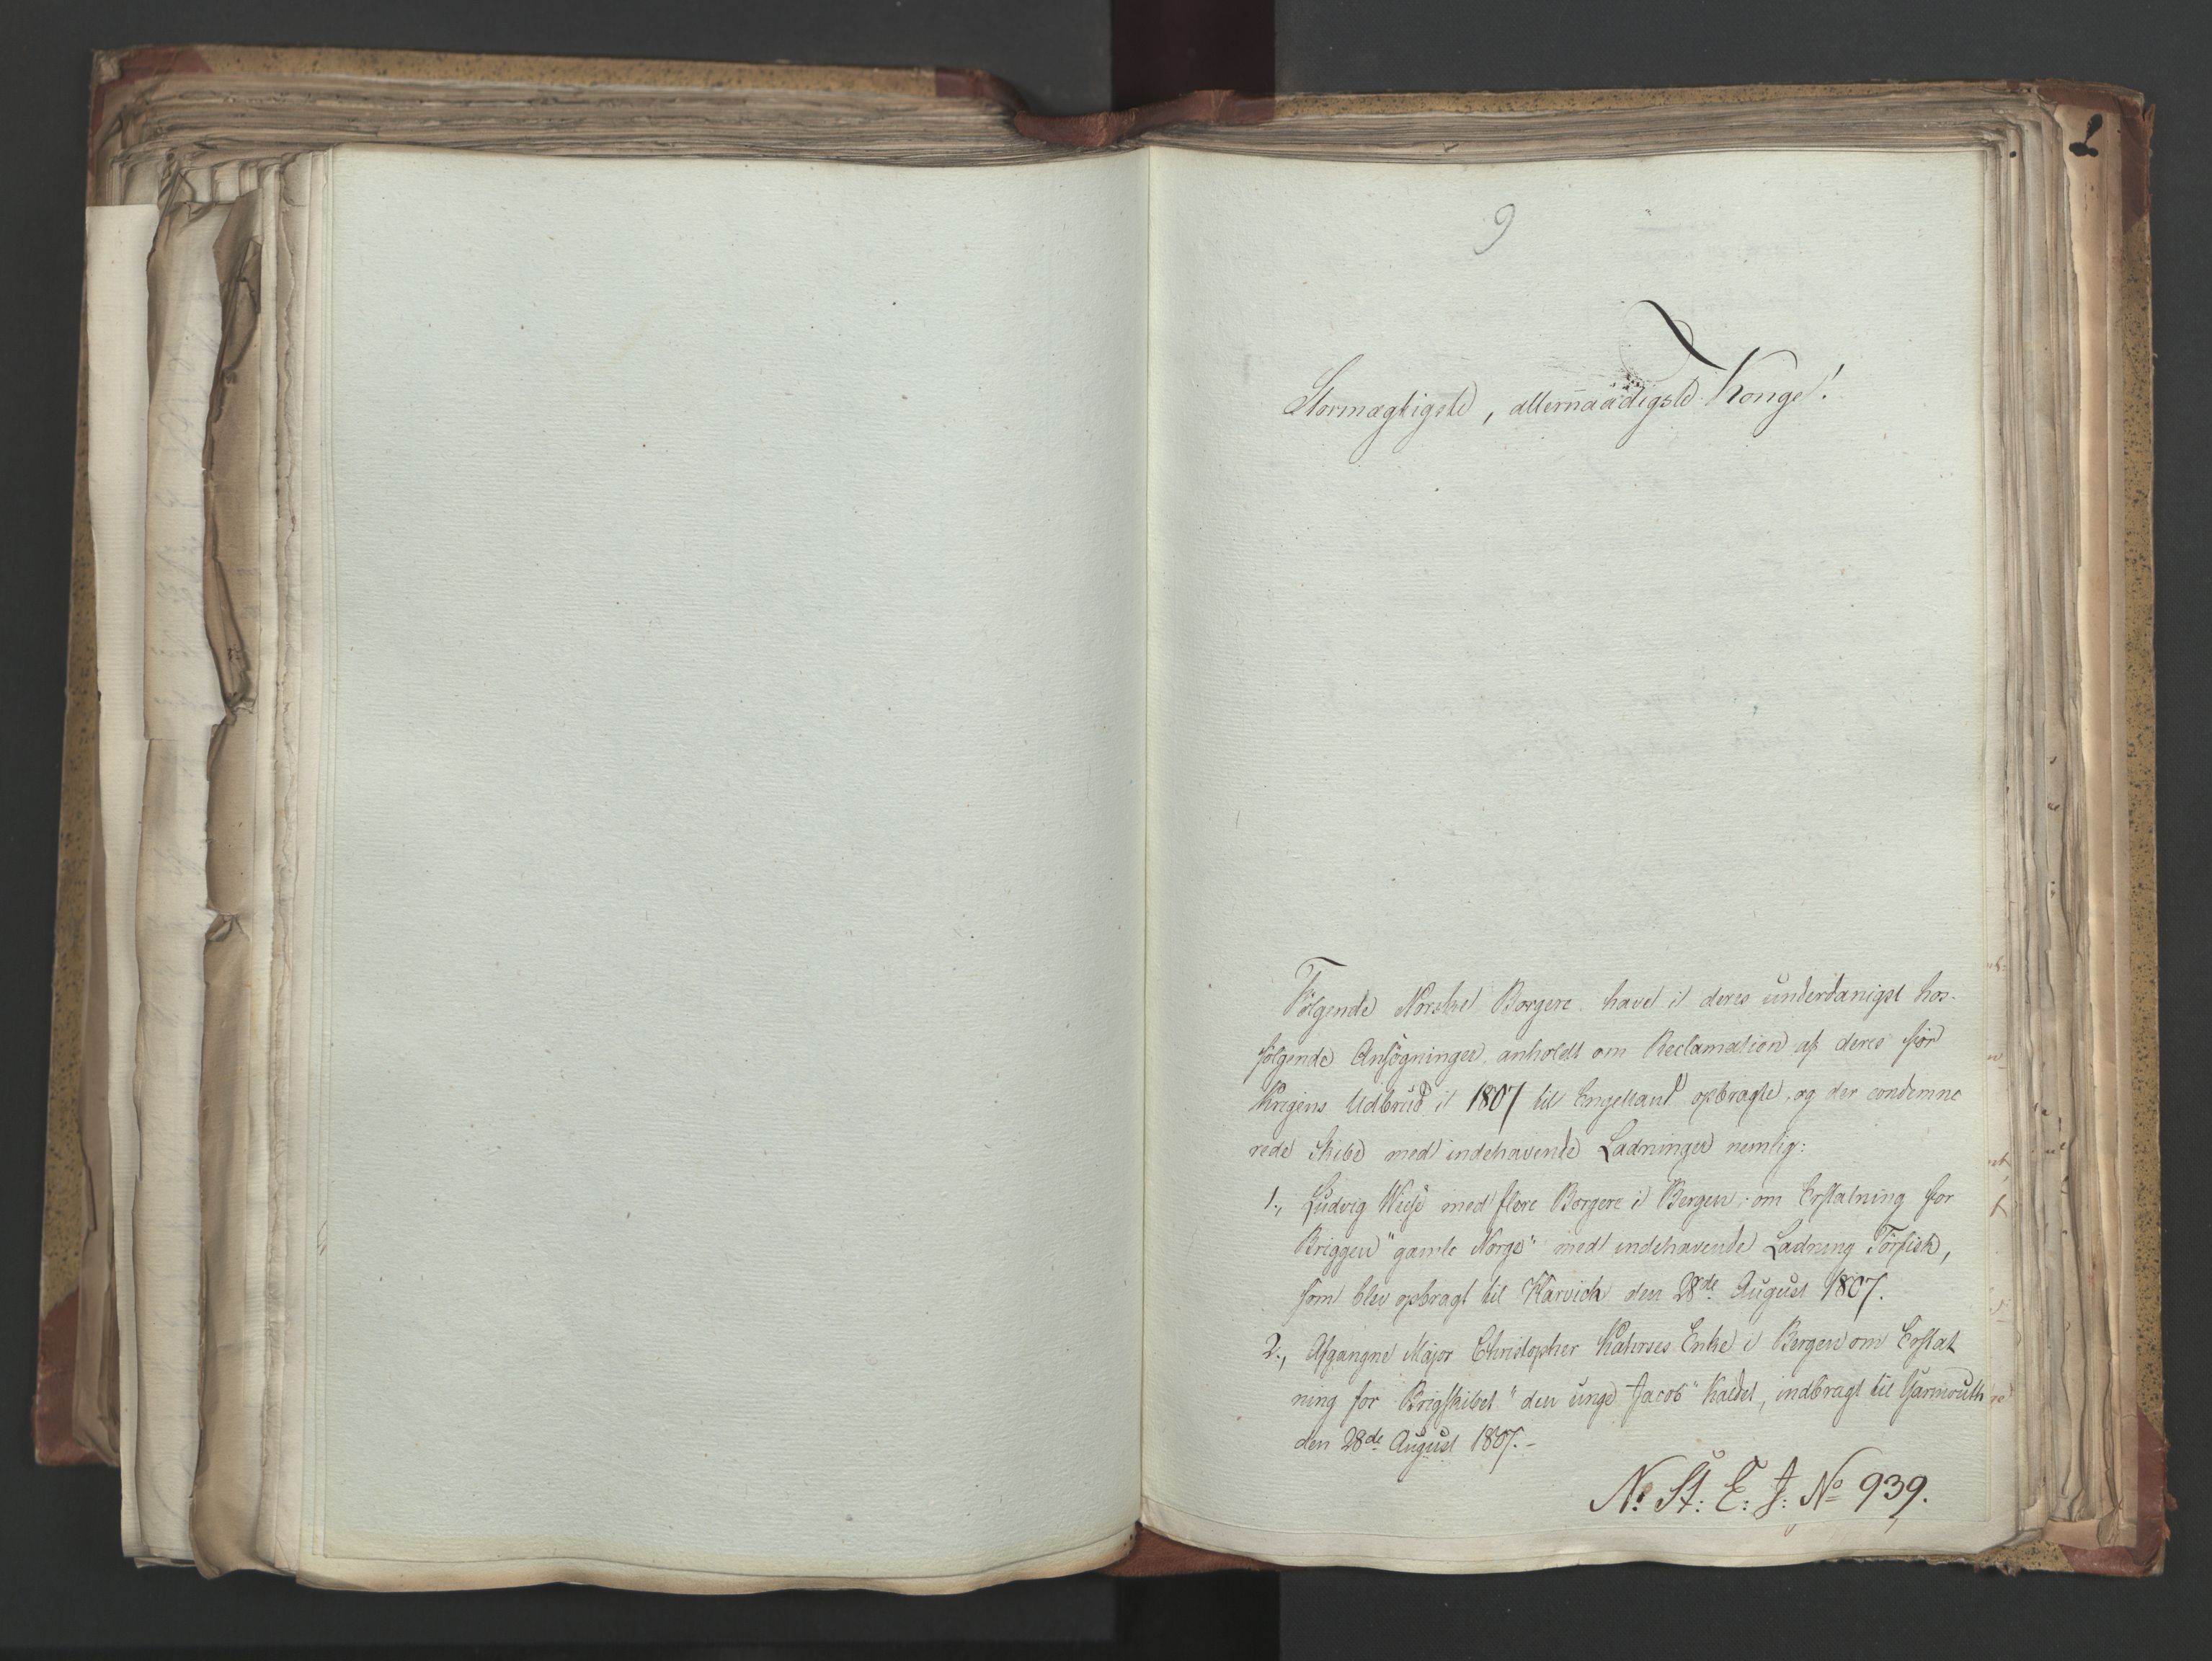 9
Stormægtigste, allernaadigste Konge!
Følgende Norske Borgere have i deres underdanigst hos-
følgende Ansøgninger anholdt om Reclamation af deres før
Krigens Udbrud i 1807 til Engelland opbragte, og der condemne
rede Skibe med indehavende Ladninger nemlig:
1., Ludvig Wiese med flere Borgere i Bergen om Erstatning for
Briggen "gamle Norge" med indehavende Ladning Törfisk,
som blev opbragt til Harvich den 28de August 1807.
2., Afgangne Major Christopher Kahrses Enke i Bergen om Erstat
ning for Brigskibet "den unge Jacob" kaldet, indbragt til Yarmouth
den 28de August 1807.-
N: St: E: J: No 939.